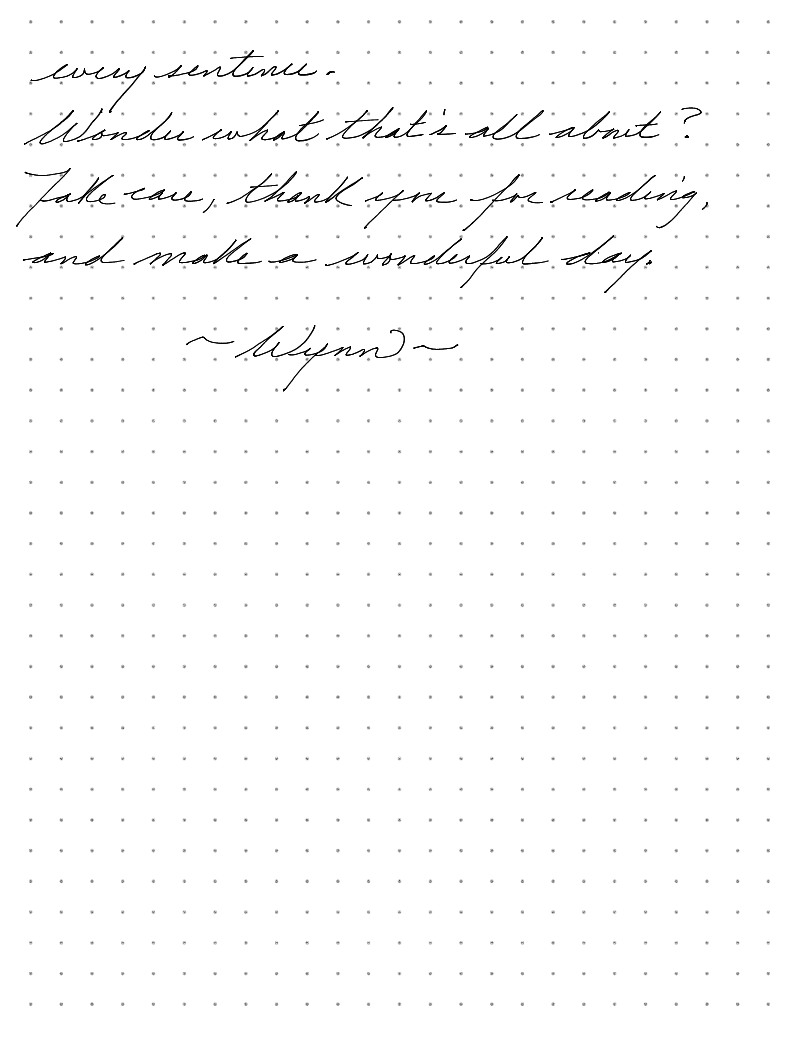 every sentence.
Wonder what that's all about?
Take care, thank you for reading,
and make a wonderful day.
~ Wynn ~